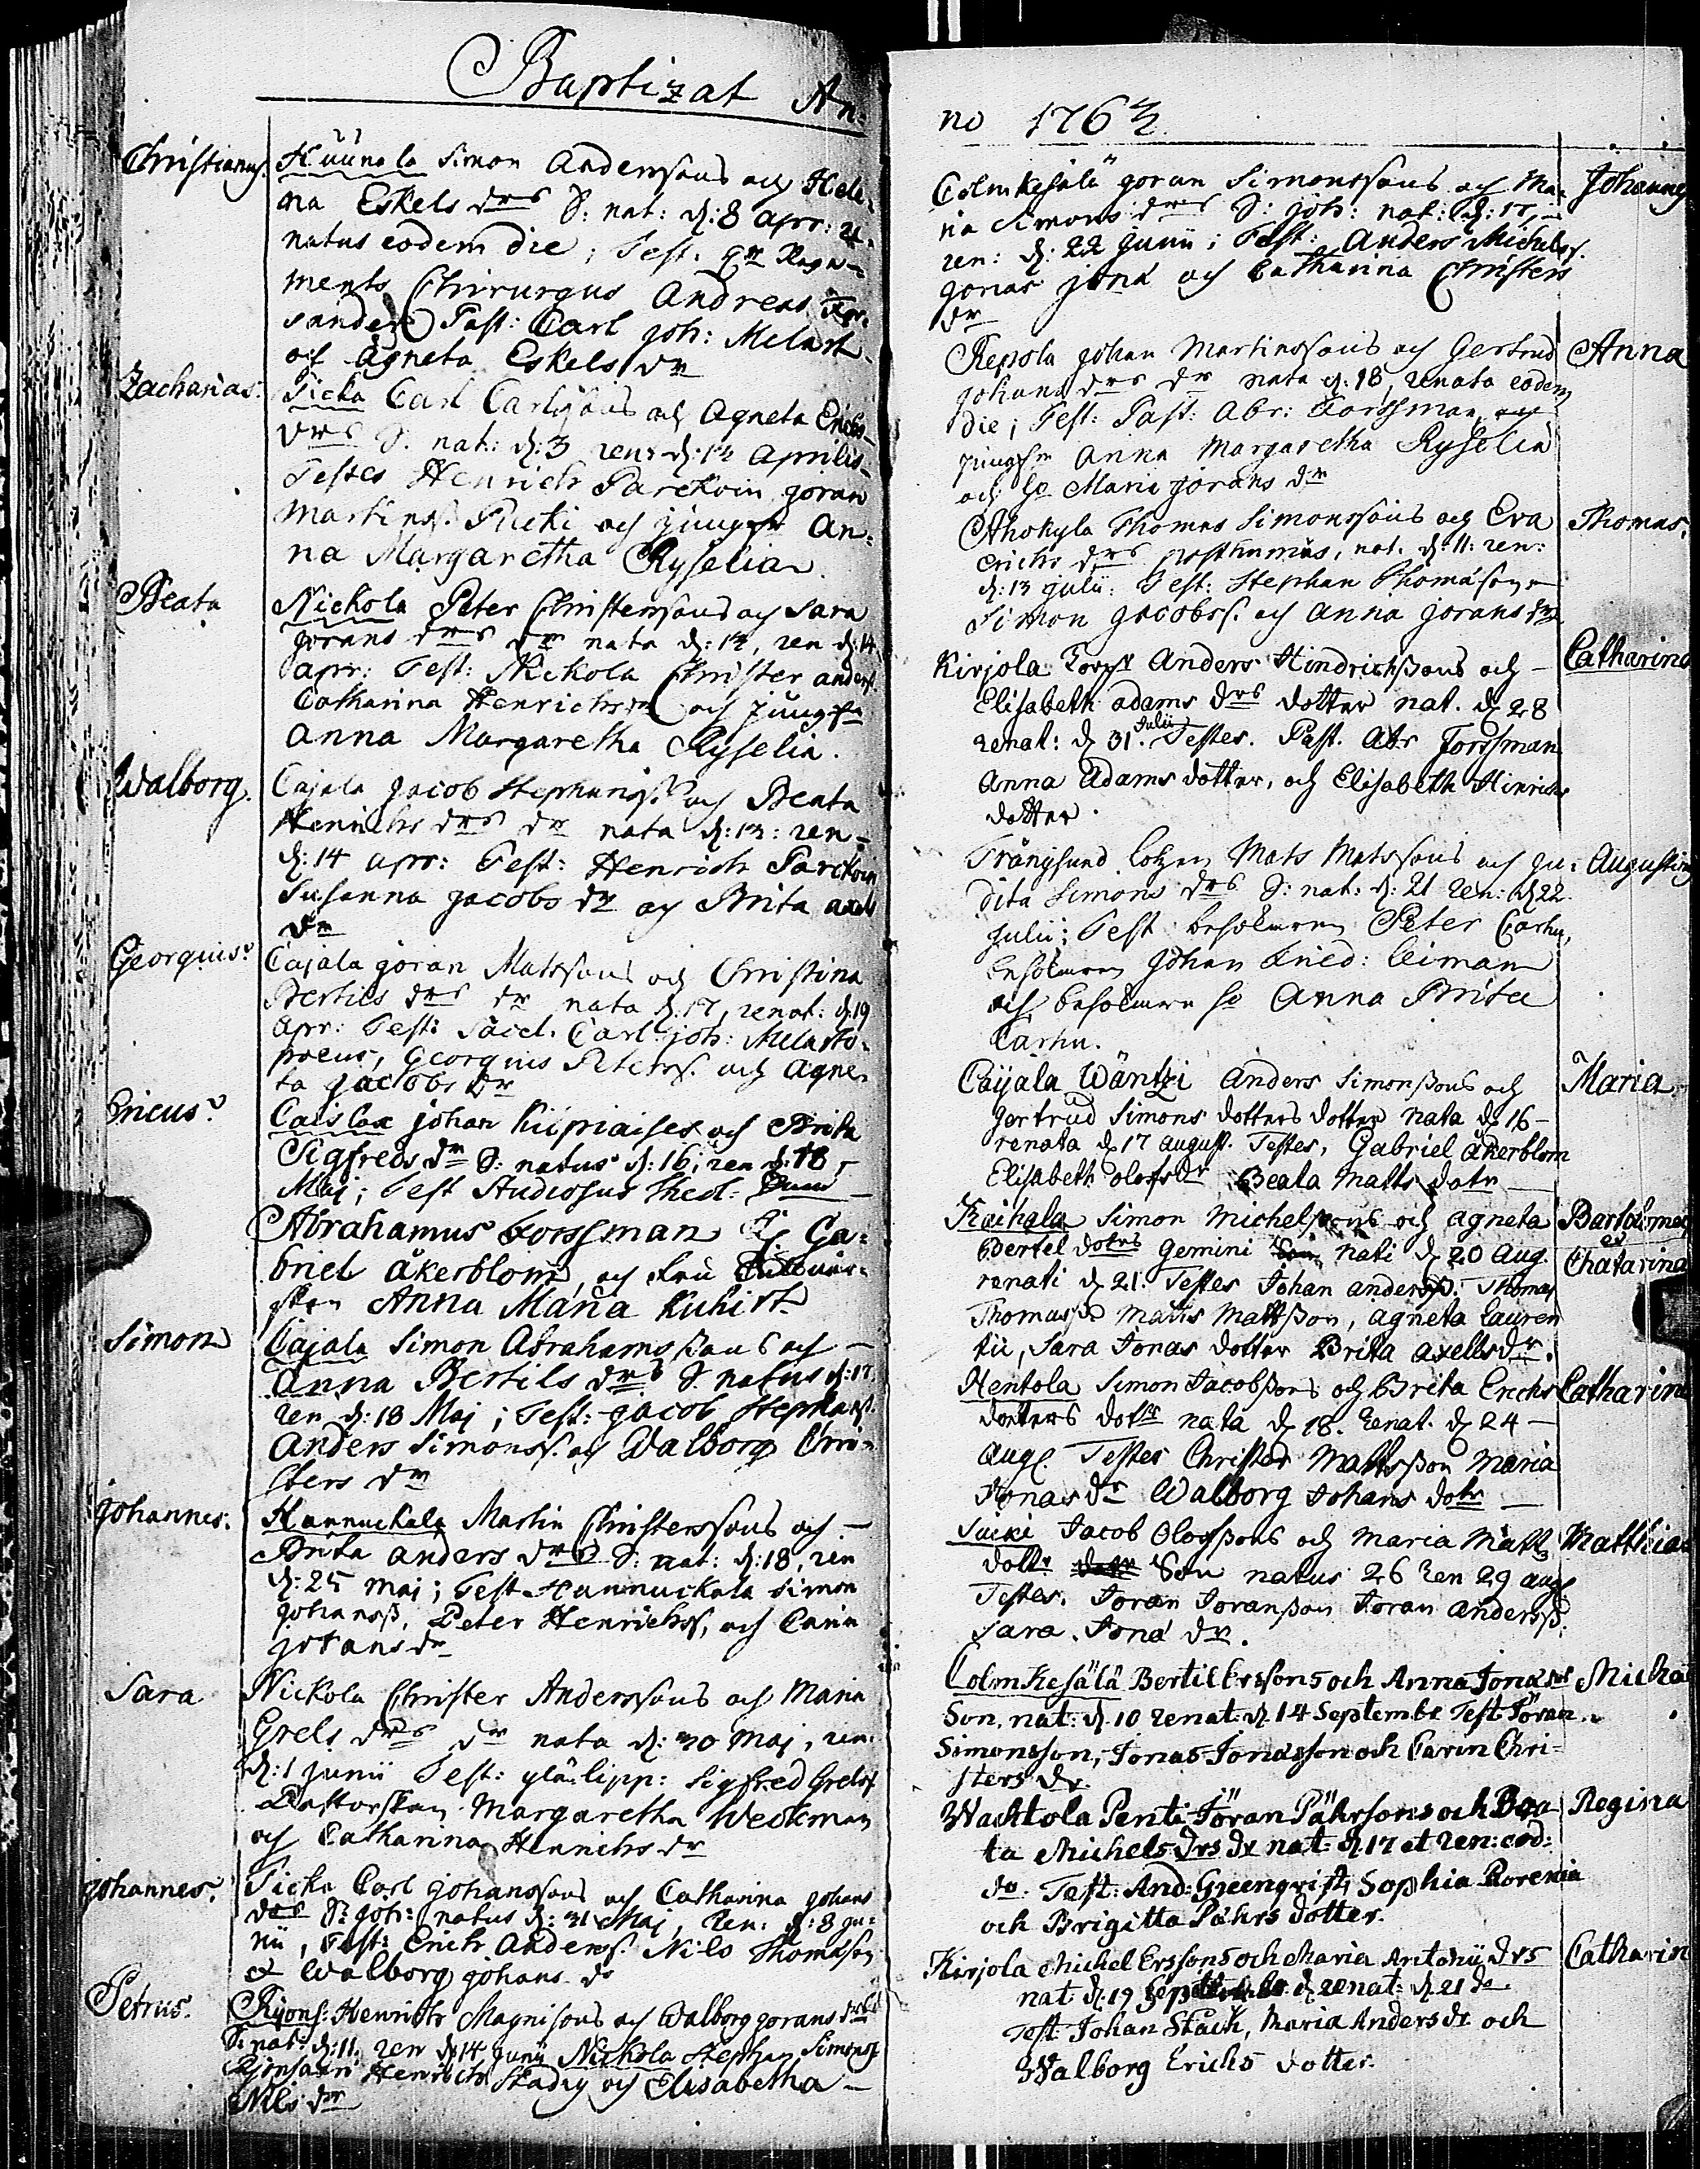 Baptizat An-
Christianus. Huunala Simon Anderssons och Hele-
na Eskels drs S: nat: d: 8 apr: re-
natus eodem die; Test. Rege-
ments Chirurgus Andreas For-
sander Past: Carl Joh: Melart
och Agneta Eskels dr
Zacharias. Ticka Carl Carlssons och Agneta Erichs
drs S. nat: d: 3 ren: d: 12 Aprilis
Testes Henrich Parckoin, Joran
Martinss. Pucki och jungfr An-
na Margaretha Ryselia.
Beata Nickola Peter Christerssons och Sara
Jorans drs dr nata d: 12, ren d: 14
apr: Test: Nickola Christer anderss.
Catharina Henrichs dr och jungfr
Anna Margaretha Ryselia.
Walborg. Cajala Jacob Stephanss. och Beata
Henrichs drs dr nata d: 13: ren-
d: 14 apr: Test: Henrich Parckoin
Susanna Jacobs dr och Brita axels
dr
Georgius. Cajala Joran Matssons och Christina
Bertils drs dr nata d. 17, renat: d. 19
Apr: Test: Sacel. Carl Joh: Melarto-
poeus, Georgius Peterss. och Agne-
ta Jacobs dr
Ericus. Caislax Johan Kiipiaises och Brita
Sigfreds dr S: natus d: 16, ren d: 18
Maj; Test Studiosus theol:
Abrahamus Forssman Ga-
briel åkerblom, och fru
Anna Maria Kuhist
Simon Cajala Simon Abrahamssons och
Anna Bertils drs S. natus d: 17
ren d: 18 Maj; Test: Jacob Stephanss.
Anders Simonss. och Walborg Chri-
sters dr
Johannes. Hannuckala Martin Christerssons och
Brita anders drs S: nat: d: 18, ren
d: 25 maj; Test Hannuckala Simon
Johanss, Peter Henrichss, och Carin
jorans dr
Sara Nickola Christer Anderssons och Maria
Grels drs dr nata d: 30 Maj, ren.
d: 1 Junii Test: Sigfred Grelss
Pastorskan Margaretha Weckman
och Catharina Henrichs dr
Johannes. Ticka Carl Johanssons och Catharina Johans
drs S: Joh: natus d: 31 Maj, Ren: d: 8 Ju-
nii, Test: Erich Anderss. Nils Thomasson
et Walborg Johans dr
Petrus. Henrich Magnisons och Walborg Jorans drs
S: nat: d: 11. ren d: 14 Junii Nickola Stephan Simonss
Henrich Stadig och Elisabetha
Nils dr
no 1763
Colmkesälä Joran Simonssons och Ma- Johannes
ria Simons drs S: Joh: nat: d: 17,
ren: d: 22 Junii; Test: Anders Michelss.
Jonas Jona och Catharina Christers
dr
Repola Johan Martinssons och Gertrud Anna
Johans drs dr nata d: 18, renata eodem
die; Test: Past: Abr: Forssman och
jungfr Anna Margaretha Ryselia
och Maria Jorans dr
Ahokyla Thomas Simonssons och Eva Thomas.
Erichs drs posthumus, nat. d: 11: ren:
d: 13 Julii: Test: Stephan Thomasson
Simon Jacobss. och Anna Jorans dr
Kirjola Anders Hindrichssons och Catharina
Elisabeth adams drs dotter nat. d 28
renat: d 31. Julii Testes. Past. Abr Forssman
Anna Adams dotter, och Elisabeth Hinrichs
dotter.
Trångsund Mats Matssons och Ju- Augustinus
dita Simons drs S: nat: d: 21 ren: d 22
Julii; Test Peter Carhu,
Johan Fried: Ceiman
och Anna Brita
Carhu.
Caijala Wäntzi Anders Simonssons och Maria
Gertrud Simons dotters dotter nata d 16
renata d 17 august. Testes, Gabriel åkerblom
Elisabeth olofs dr Beata Matts dotr
Kaihala Simon Michelssons och Agneta Bartolomeus
Bertel dotrs Gemini nati d 20 Aug. et Chatarina
renati d 21. Testes Johan anderss. Thomas
Thomasson Matts Mattsson, Agneta Lauren
tii, Sara Jonas dotter Brita axells dr.
Hentola Simon Jacobssons och Brita Erichs Catharina
dotters dottr nata d 18. renat. d 24
Aug. Testes Christer Mattsson Maria
Jonas dr Walborg Johans dotr
Sucki Jacob Olofssons och Maria Matts Matthias
dottr Son natus 26 Ren 29 aug
Testes. Joran Joransson Joran anderss,
Sara, Jona dr.
Colmkesälä Bertil Erssons och Anna Jonas Michaël
Son. nat: d. 10 renat d. 14 Septembr. Test: Jöran
Simonsson, Jonas Jonasson och Carin Chri-
sters dr.
Wachtola Penti Jöran Påhrsons och Bea- Regina
ta Michels drs dr nat: d. 17 et ren: eod:
do. Test: And: Greenqvist, Sophia Rorenia
och Brigitta Påhrs dotter.
Kirjola Michel Erssons och Maria Antonii drs Catharin
nat d. 19 renat d. 21 do
Test: Johan Stack, Maria Anders dr och
Walborg Erichs dotter.